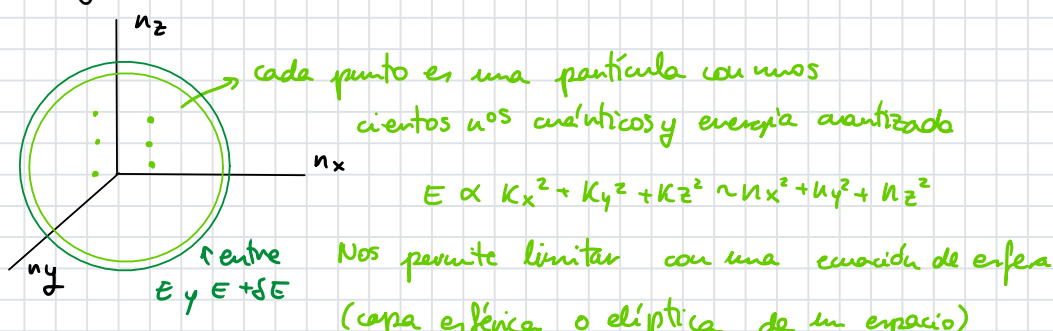 nz
cada punto es una partícula con unos
ciertos nos cuánticos y energía cuantizada
nx
E ∝ Kx² + Ky² + Kz² ~ nx² + ny² + nz²
ny
↑ entre
E y E + δE
Nos permite limitar con una ecuación de esfera
(capa esférica o elíptica de un espacio)